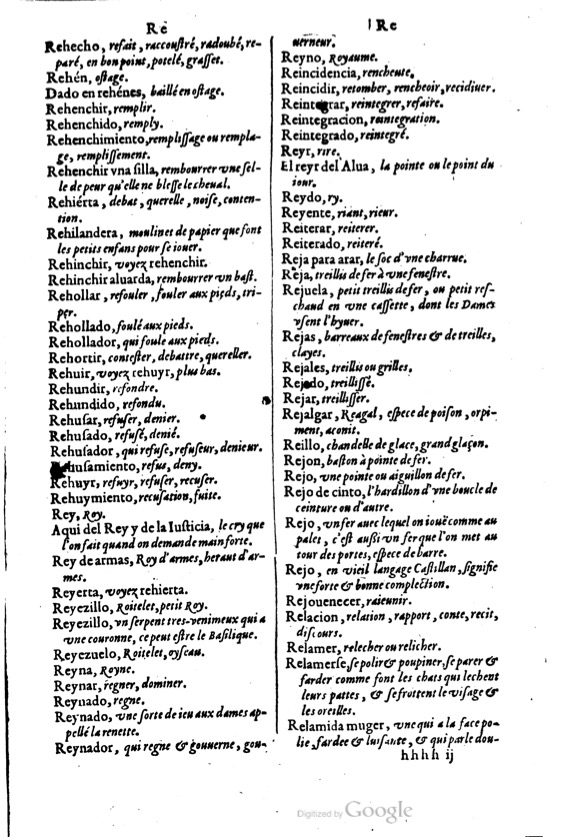 Re
Rehecho, refait, raccoustré, radoubé, re-
paré, en bon point, potelé, grasset.
Rehén, ostage.
Dado en rehénes, baillé en ostage.
Rehenchir, remplir.
Rehenchido, remply.
Rehenchimiento, remplissage ou rempla-
ge, remplissement.
Rehenchir vna silla, rembourrer vne sel-
le de peur qu'elle ne blesse le cheual.
Rehiérta, debat, querelle, noise, conten-
tion.
Rehilandera, moulinet de papier que font
les petits enfans pour se iouer.
Rehinchir, voyez rehenchir.
Rehinchir aluarda, rembourrer vn bast.
Rehollar, refouler, fouler aux pieds, tri-
per.
Rehollado, foulé aux pieds.
Rehollador, qui foule aux pieds.
Rehortir, contester, debattre, quereller.
Rehuir, voyez rehuyr, plus bas.
Rehundir, refondre.
Rehundido, refondu.
Rehusar, refuser, denier.
Rehusado, refusé, denié.
Rehusador, qui refuse, refuseur, denieur.
Rehusamiento, refus, deny.
Rehuyr, refuyr, refuser, recuser.
Rehuymiento, recusation, fuite.
Rey, Roy.
Aqui del Rey y de la Iusticia, le cry que
l'on fait quand on demande main forte.
Rey de armas, Roy d'armes, heraut d'ar-
mes.
Reyerta, voyez rehierta.
Reyezillo, Roitelet, petit Roy.
Reyezillo, vn serpent tres-venimeux qui a
vne couronne, ce peut estre le Basilique.
Reyezuelo, Roitelet, oyseau.
Reyna, Royne.
Reynar, regner, dominer.
Reynado, regne.
Reynado, vne sorte de ieu aux dames ap-
pellé la renette.
Reynador, qui regne & gouuerne, gou-
Re
uerneur.
Reyno, Royaume.
Reincidencia, rencheute.
Reincidir, retomber, rencheoir, recidiuer.
Reintegrar, reintegrer, refaire.
Reintegracion, reintegration.
Reintegrado, reintegré.
Reyr, rire.
El reyr del Alua, la pointe ou le point du
iour.
Reydo, ry.
Reyente, riant, rieur.
Reiterar, reiterer.
Reiterado, reiteré.
Reja para arar, le soc d'vne charrue.
Reja, treillis de fer à vne fenestre.
Rejuela, petit treillis de fer, ou petit res-
chaud en vne cassette, dont les Dames
vsent l'hyuer.
Rejas, barreaux de fenestres & de treilles,
clayes.
Rejales, treillis ou grilles.
Rejado, treillissé.
Rejar, treillisser.
Rejalgar, Reagal, espece de poison, orpi-
ment, aconit.
Reillo, chandelle de glace, grand glaçon.
Rejon, baston à pointe de fer.
Rejo, vne pointe ou aiguillon de fer.
Rejo de cinto, l'hardillon d'vne boucle de
ceinture ou d'autre.
Rejo, vn fer auec lequel on iouë comme au
palet, c'est aussi vn fer que l'on met au
tour des portes, espece de barre.
Rejo, en vieil langage Castillan, signifie
vne forte & bonne complection.
Rejouenecer, raieunir.
Relacion, relation, rapport, conte, recit,
discours.
Relamer, relecher ou relicher.
Relamerse, se polir & poupiner, se parer &
farder comme font les chats qui lechent
leurs pattes, & se frottent le visage &
les oreilles.
Relamida muger, vne qui a la face po-
lie, fardee & luisante, & qui parle dou-
hhhh ij
Digitized by Google